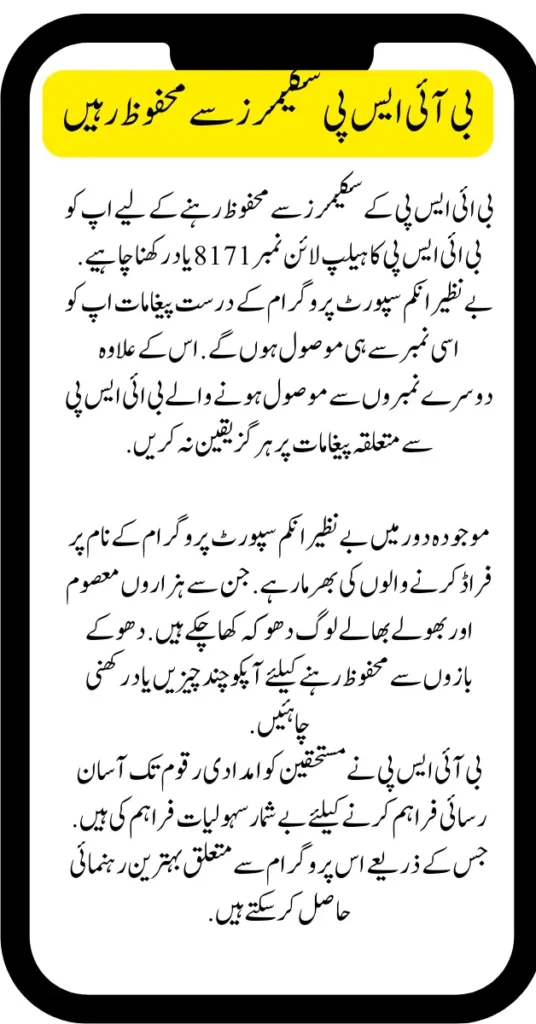 بی آئی ایس پی سکیمرز سے محفوظ رہیں
بی ائی ایس پی کے سکیمرز سے محفوظ رہنے کے لیے اپ کو
بی ائی ایس پی کا ہیلپ لائن نمبر 8171 یاد رکھنا چاہیے.
بے نظیر انکم سپورٹ پروگرام کے درست پیغامات اپ کو
اسی نمبر سے ہی موصول ہوں گے. اس کے علاوہ
دوسرے نمبروں سے موصول ہونے والے بی ائی ایس پی
سے متعلقہ پیغامات پر ہرگز یقین نہ کریں.
موجودہ دور میں بے نظیر انکم سپورٹ پروگرام کے نام پر
فراڈ کرنے والوں کی بھرمار ہے. جن سے ہزاروں معصوم
اور بھولے بھالے لوگ دھوکہ کھا چکے ہیں. دھوکے
بازوں سے محفوظ رہنے کیلئے آپکو چند چیزیں یاد رکھنی
چاہئیں.
بی آئی ایس پی نے مستحقین کو امدادی رقوم تک آسان
رسائی فراہم کرنے کیلئے بے شمار سہولیات فراہم کی ہیں.
جس کے ذریعے اس پروگرام سے متعلق بہترین رہنمائی
حاصل کر سکتے ہیں.